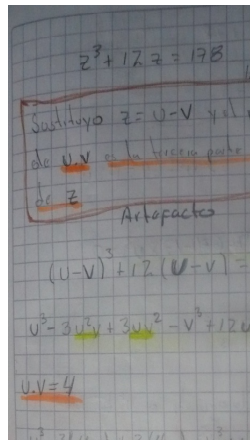 z³ + 12 z = 178
Sustituyo z = u - v y el
de u.v es la tercia parte
de z
Artefacto
(u-v)³ + 12 (u-v) =
u³ - 3u²v + 3uv² - v³ + 12u
u.v = 4